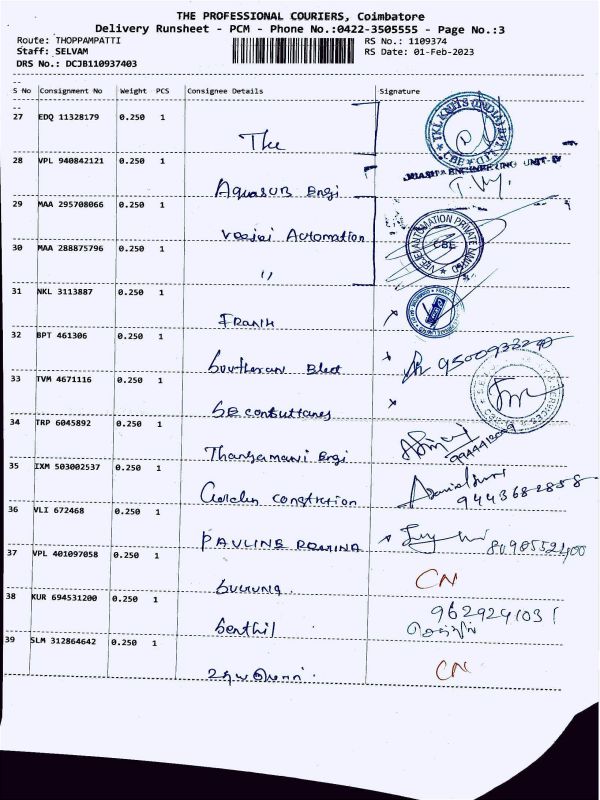 THE PROFESSIONAL COURIERS, Coimbatore
Delivery Runsheet - PCM - Phone No.:0422-3505555 - Page No.:3
Route: THOPPAMPATTI RS No.: 1109374
Staff: SELVAM RS Date: 01-Feb-2023
DRS No.: DCJB110937403
S No Consignment No Weight PCS Consignee Details Signature
27 EDQ 11328179 0.250 1 The
28 VPL 940842121 0.250 1 Aquasub Engi
29 MAA 295708066 0.250 1 Veejei Automation
30 MAA 288875796 0.250 1 "
31 NKL 3113887 0.250 1
32 BPT 461306 0.250 1 Southern Elect 9500933240
33 TVM 4671116 0.250 1
34 TRP 6045892 0.250 1 Thangamani Engi
35 IXM 503002537 0.250 1 constration 9443682858
36 VLI 672468 0.250 1 PAVLINE ROMINA 8090552400
37 VPL 401097058 0.250 1 CN
38 KUR 694531200 0.250 1 Senthil 9629241031
39 SLM 312864642 0.250 1 CN